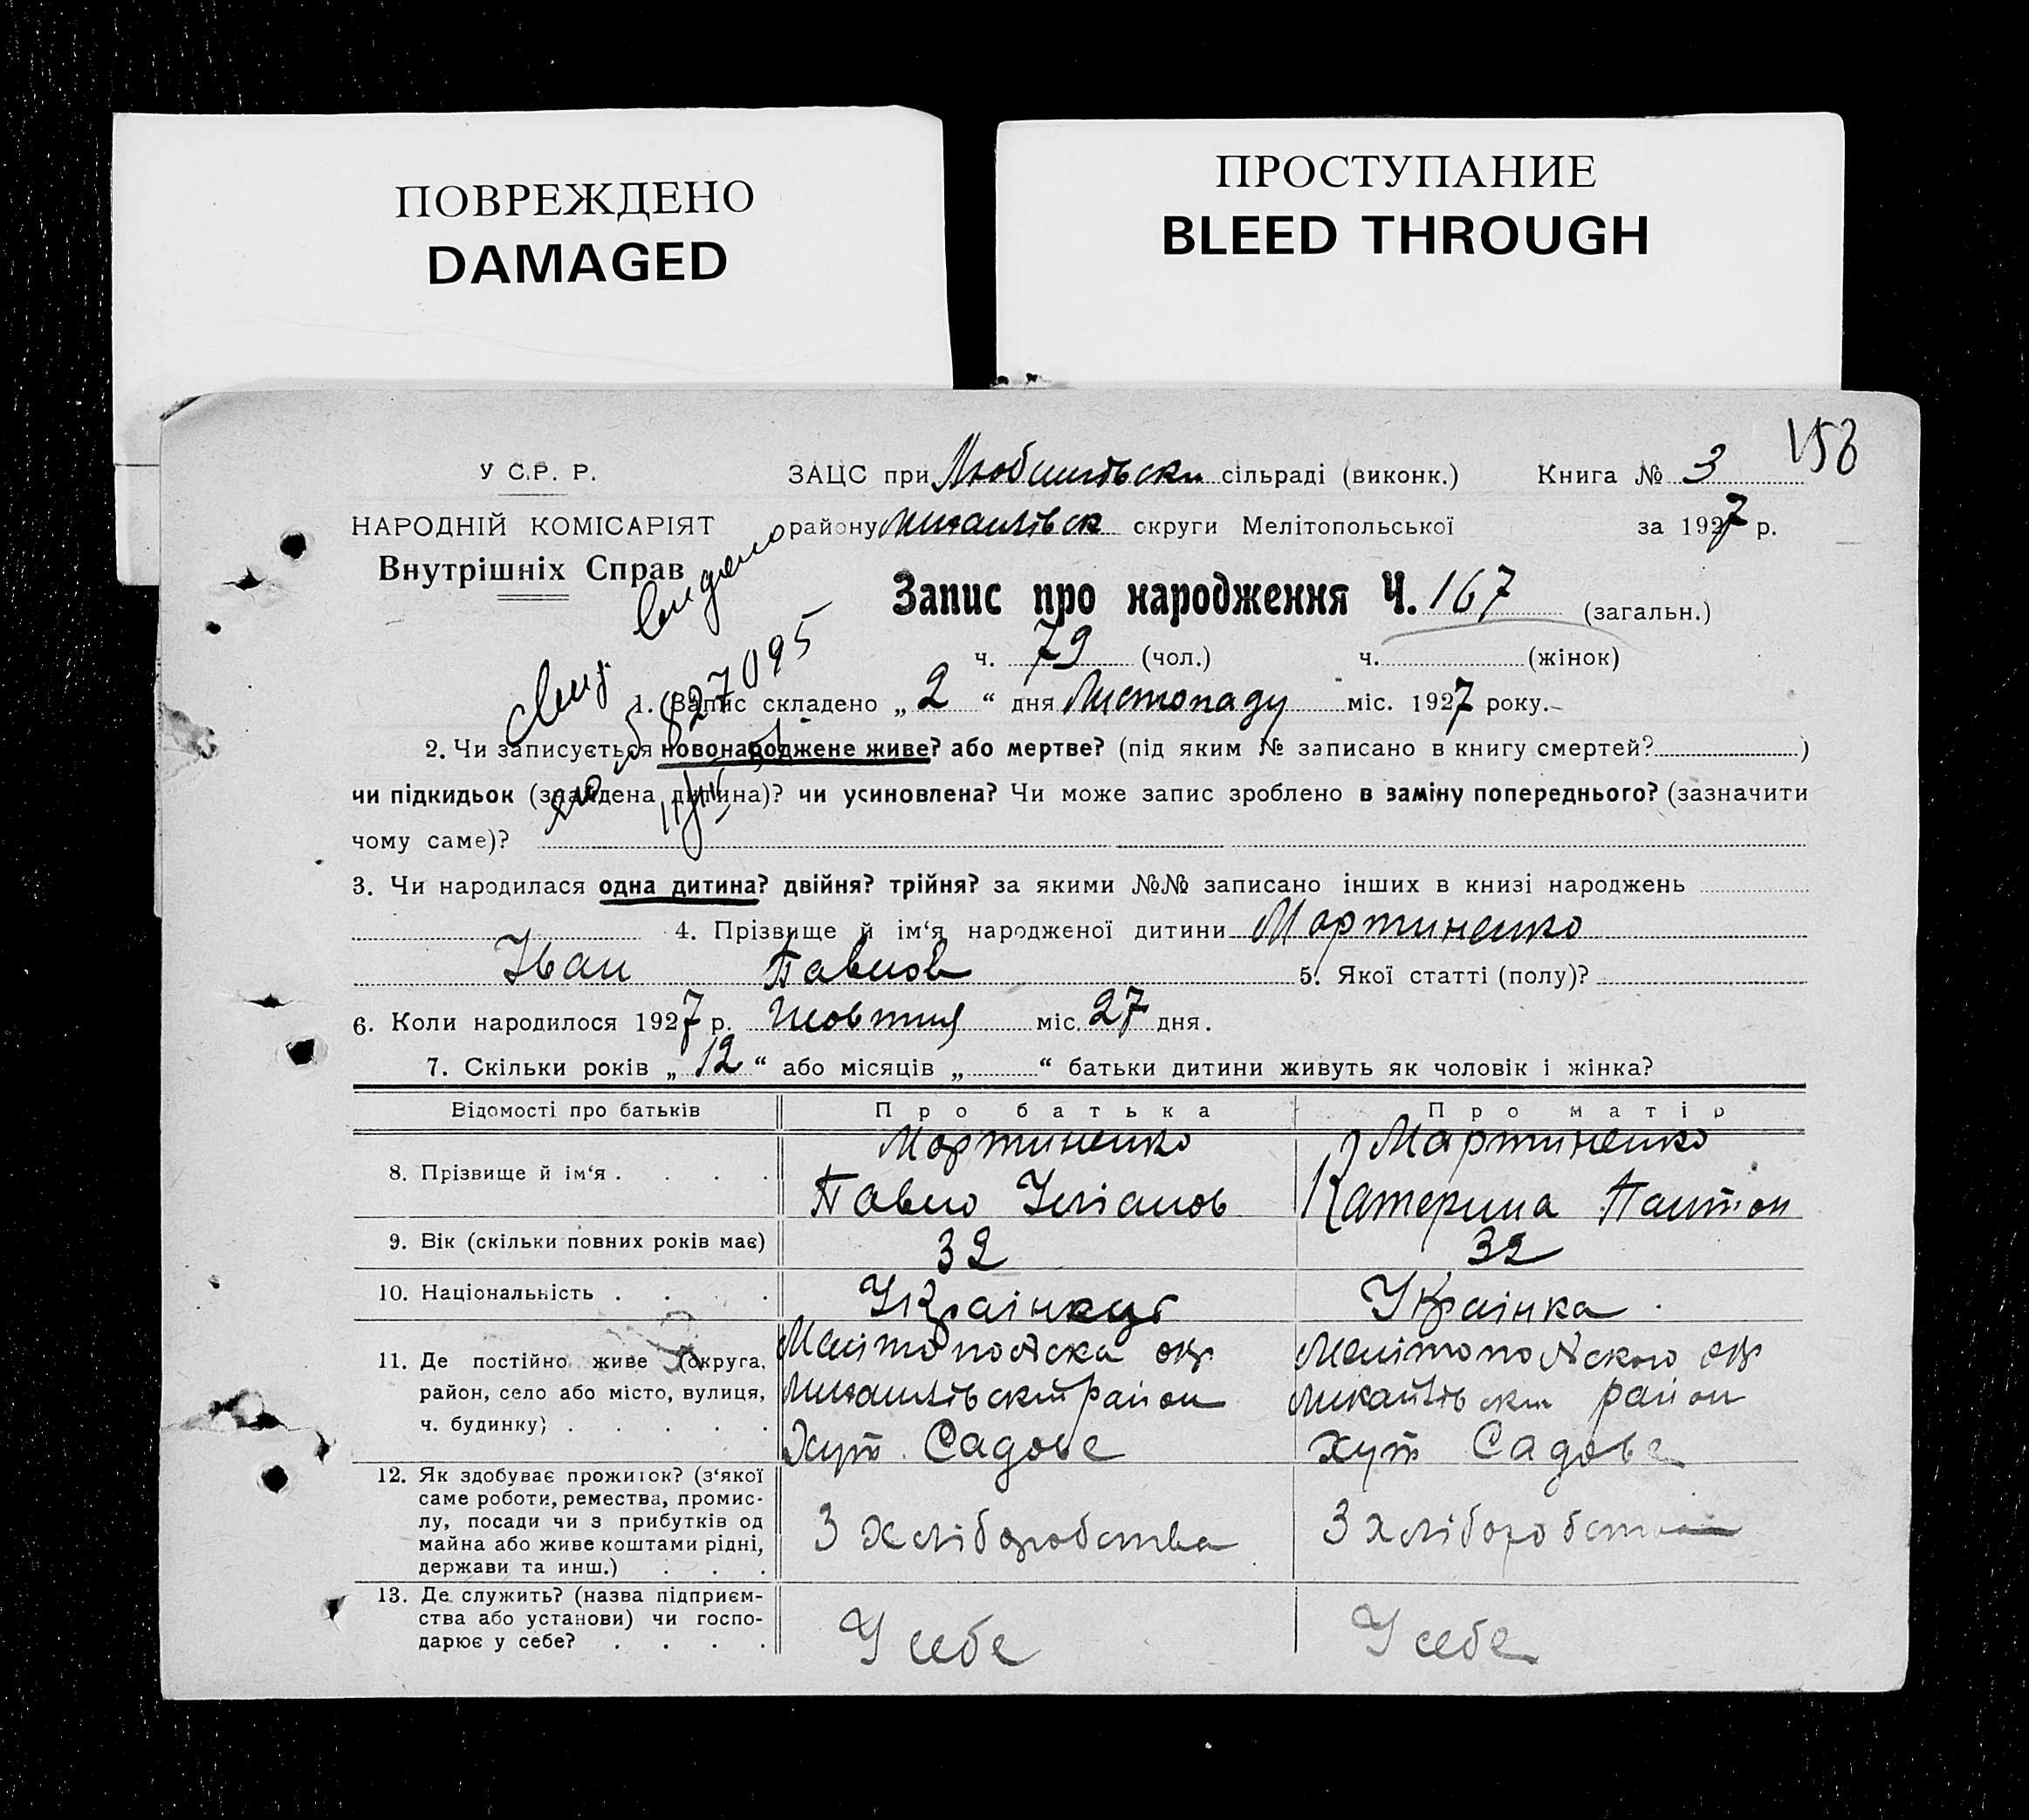 ПОВРЕЖДЕНО
DAMAGED
ПРОСТУПАНИЕ
BLEED THROUGH
158
У С.Р. Р.
НАРОДНІЙ КОМІСАРІЯТ
Внутрішніх Справ
ЗАЦС при сільраді (виконк.) Книга № 3
району округи Мелітопольської за 1927 р.
Запис про народження Ч. 167 (загальн.)
ч. 79 (чол.) ч. (жінок)
827095
1. Запис складено „ 2 “ дня Листопаду міс. 1927 року.
2. Чи записується новонароджене живе? або мертве? (під яким № записано в книгу смертей? )
чи підкидьок (знайдена дитина)? чи усиновлена? Чи може запис зроблено в заміну попереднього? (зазначити
чому саме)?
3. Чи народилася одна дитина? двійня? трійня? за якими №№ записано інших в книзі народжень
4. Прізвище й ім‘я народженої дитини Мартиненко
Іван Павлов 5. Якої статті (полу)?
6. Коли народилося 1927 р. Жовтня міс. 27 дня.
7. Скільки років „ 12 “ або місяців „ “ батьки дитини живуть як чоловік і жінка?
Відомості про батьків Про батька Про матір
8. Прізвище й ім‘я . . . . Мартиненко Мартиненко
Павло Катерина
9. Вік (скільки повних років має) 32 32
10. Національність . . . . Українець Українка
11. Де постійно живе (округа, Мелітопольска окр Мелітопольскою окр
район, село або місто, вулиця, Михайлівский район район
ч. будинку) . . . . . Хут. Садове хут Садове
12. Як здобуває прожиток? (з‘якої
саме роботи, ремества, промис-
лу, посади чи з прибутків од З хліборобства З хліборобства
майна або живе коштами рідні,
держави та инш.) . . .
13. Де служить? (назва підприєм-
ства або установи) чи госпо- У себе У себе
дарює у себе? . . . .